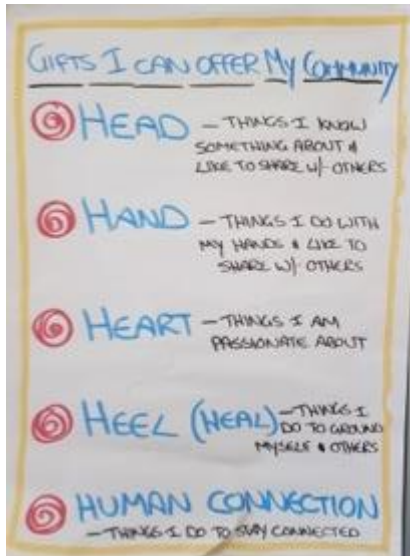 GIFTS I CAN OFFER MY COMMUNITY
HEAD – THINGS I KNOW
SOMETHING ABOUT &
LIKE TO SHARE W/ OTHERS
HAND – THINGS I DO WITH
MY HANDS & LIKE TO
SHARE W/ OTHERS
HEART – THINGS I AM
PASSIONATE ABOUT
HEEL (HEAL) – THINGS I
DO TO GROUND
MYSELF & OTHERS
HUMAN CONNECTION
– THINGS I DO TO STAY CONNECTED